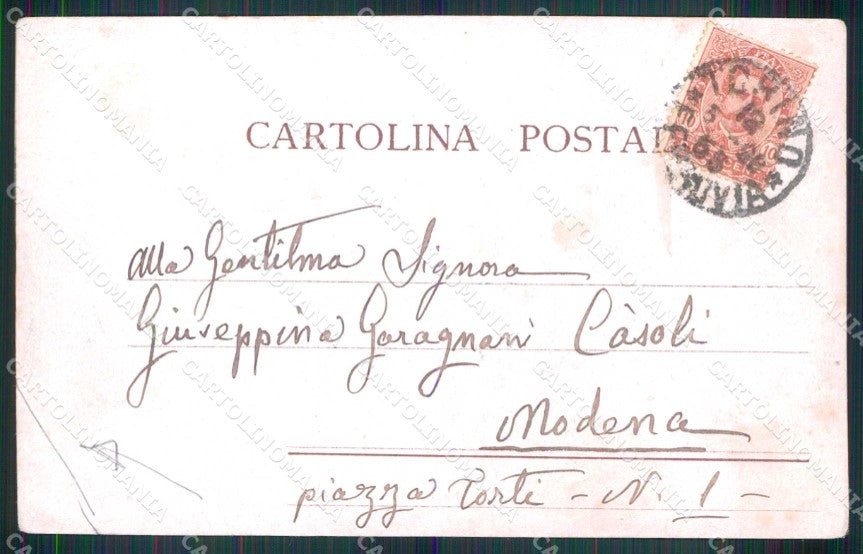 CARTOLINA POSTAL
TORINO
FERROVIA
alla Gentilma Signora
Giuseppina Garagnani Càsoli
Modena
piazza Torti - N. 1 -
CARTOLINOMANIA